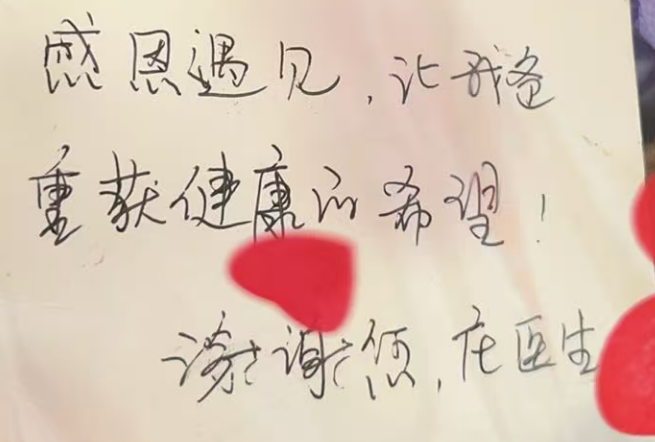 感恩遇见，让我爸
重获健康的希望！
谢谢您，庄医生